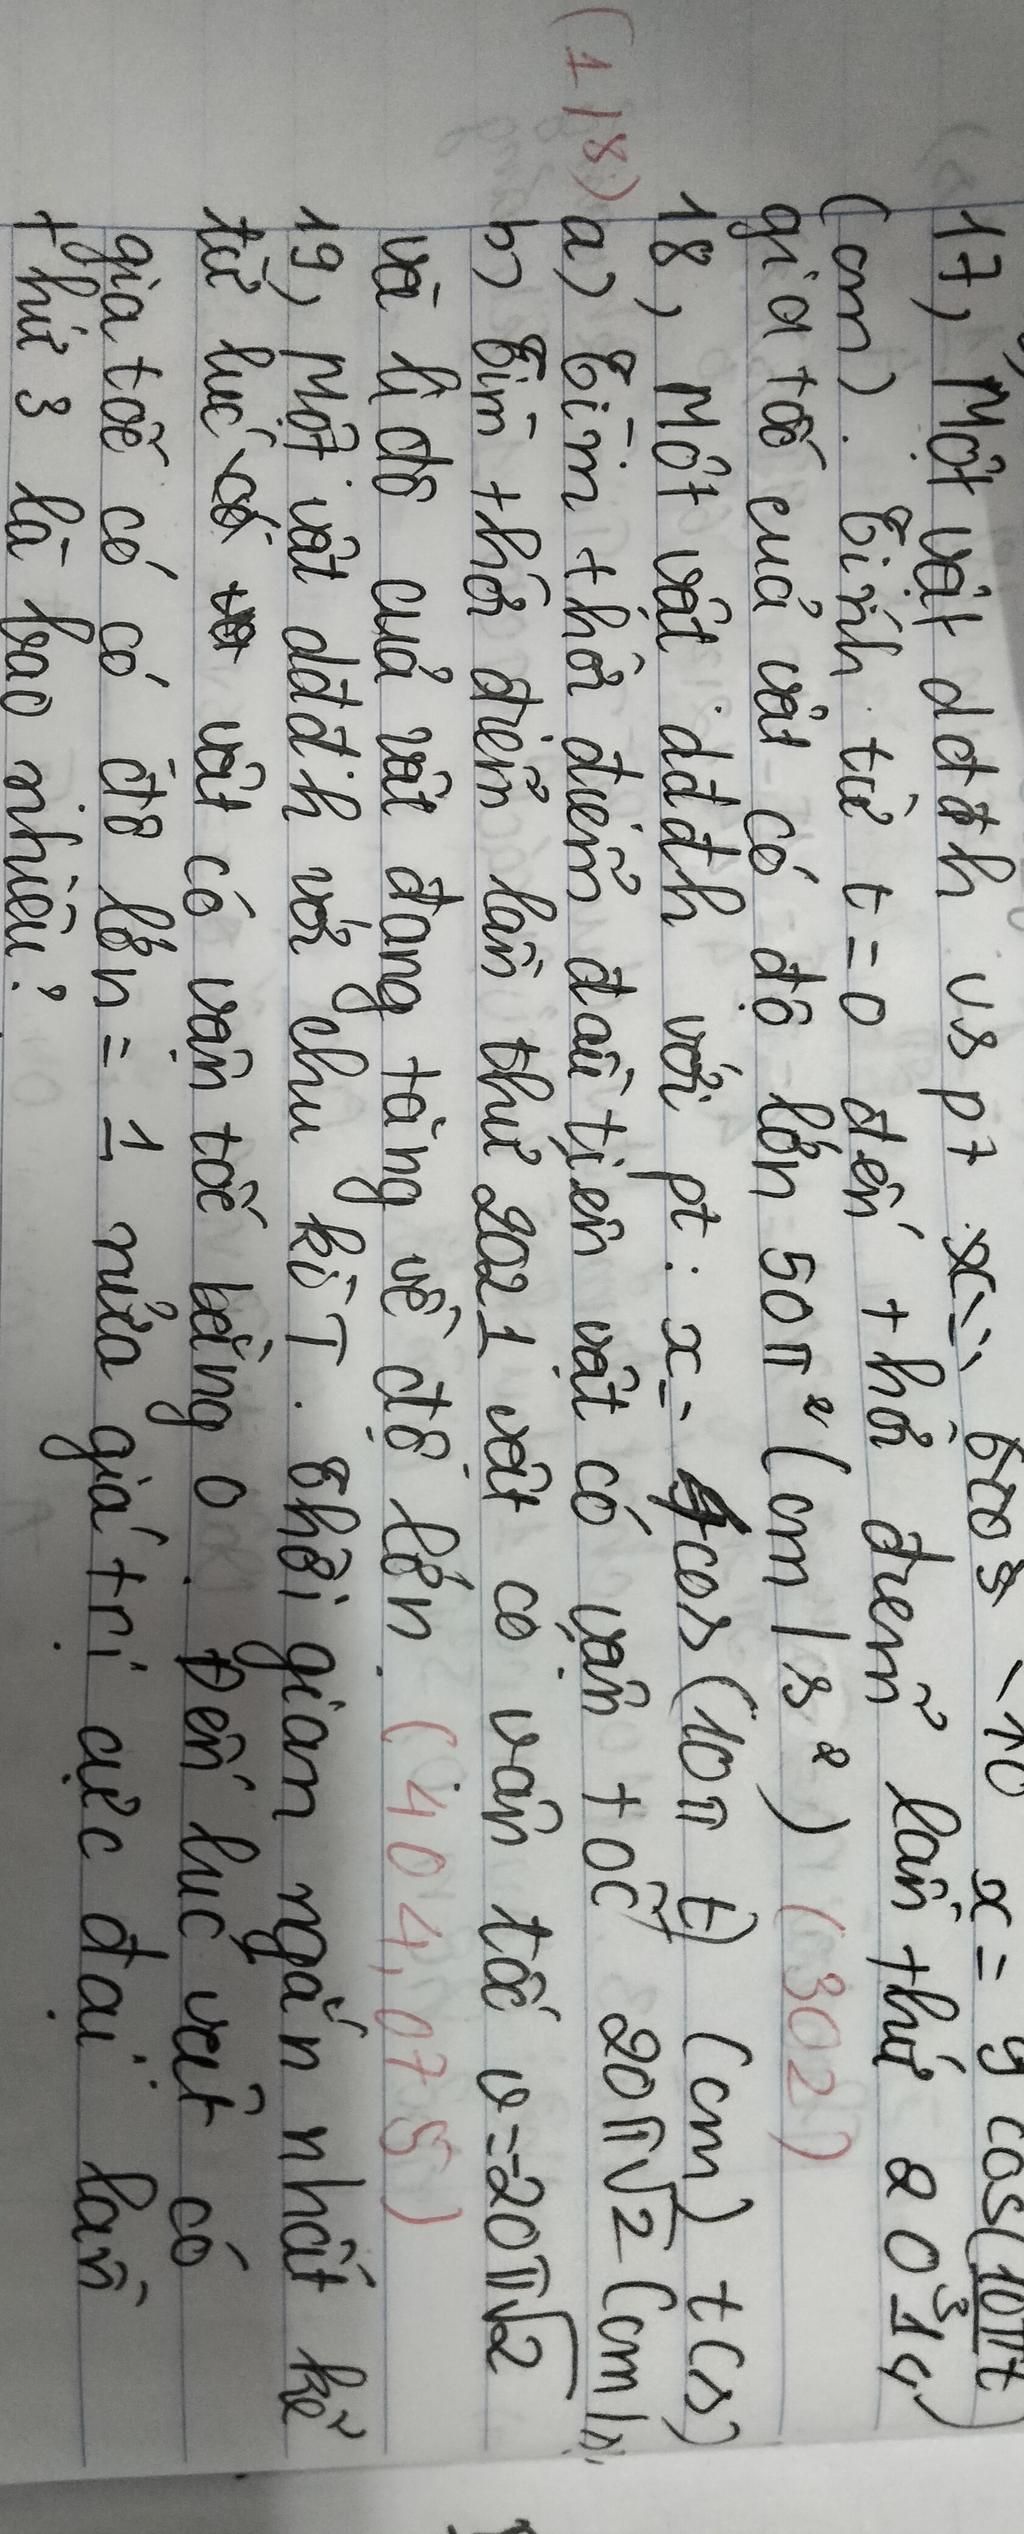 17, Một vật dđđh vs pt x= 6cos -10 x = 9 cos(10πt
3
(cm). Tính từ t=0 đến thời điểm lần thứ 2014
gia tốc của vật có độ lớn 50π² (cm/s²) (302)
18, Một vật dđđh với pt: x= 4cos(10π t) (cm) t(s)
(1/8) a) Tìm thời điểm đầu tiên vật có vận tốc 20π√2 (cm/s).
b) Tìm thời điểm lần thứ 2021 vật có vận tốc v=20π√2
và li độ của vật đang tăng về độ lớn. (404,075)
19, Một vật dđđh với chu kì T. Thời gian ngắn nhất kể
từ lúc vật có vận tốc bằng 0. Đến lúc vật có
gia tốc có độ lớn = 1 nửa giá trị cực đại lần
thứ 3 là bao nhiêu?